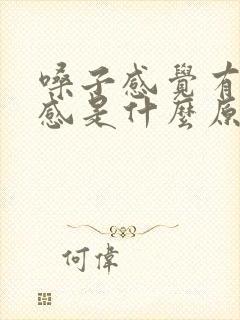 嗓子感覺有
感是什麼原
何偉